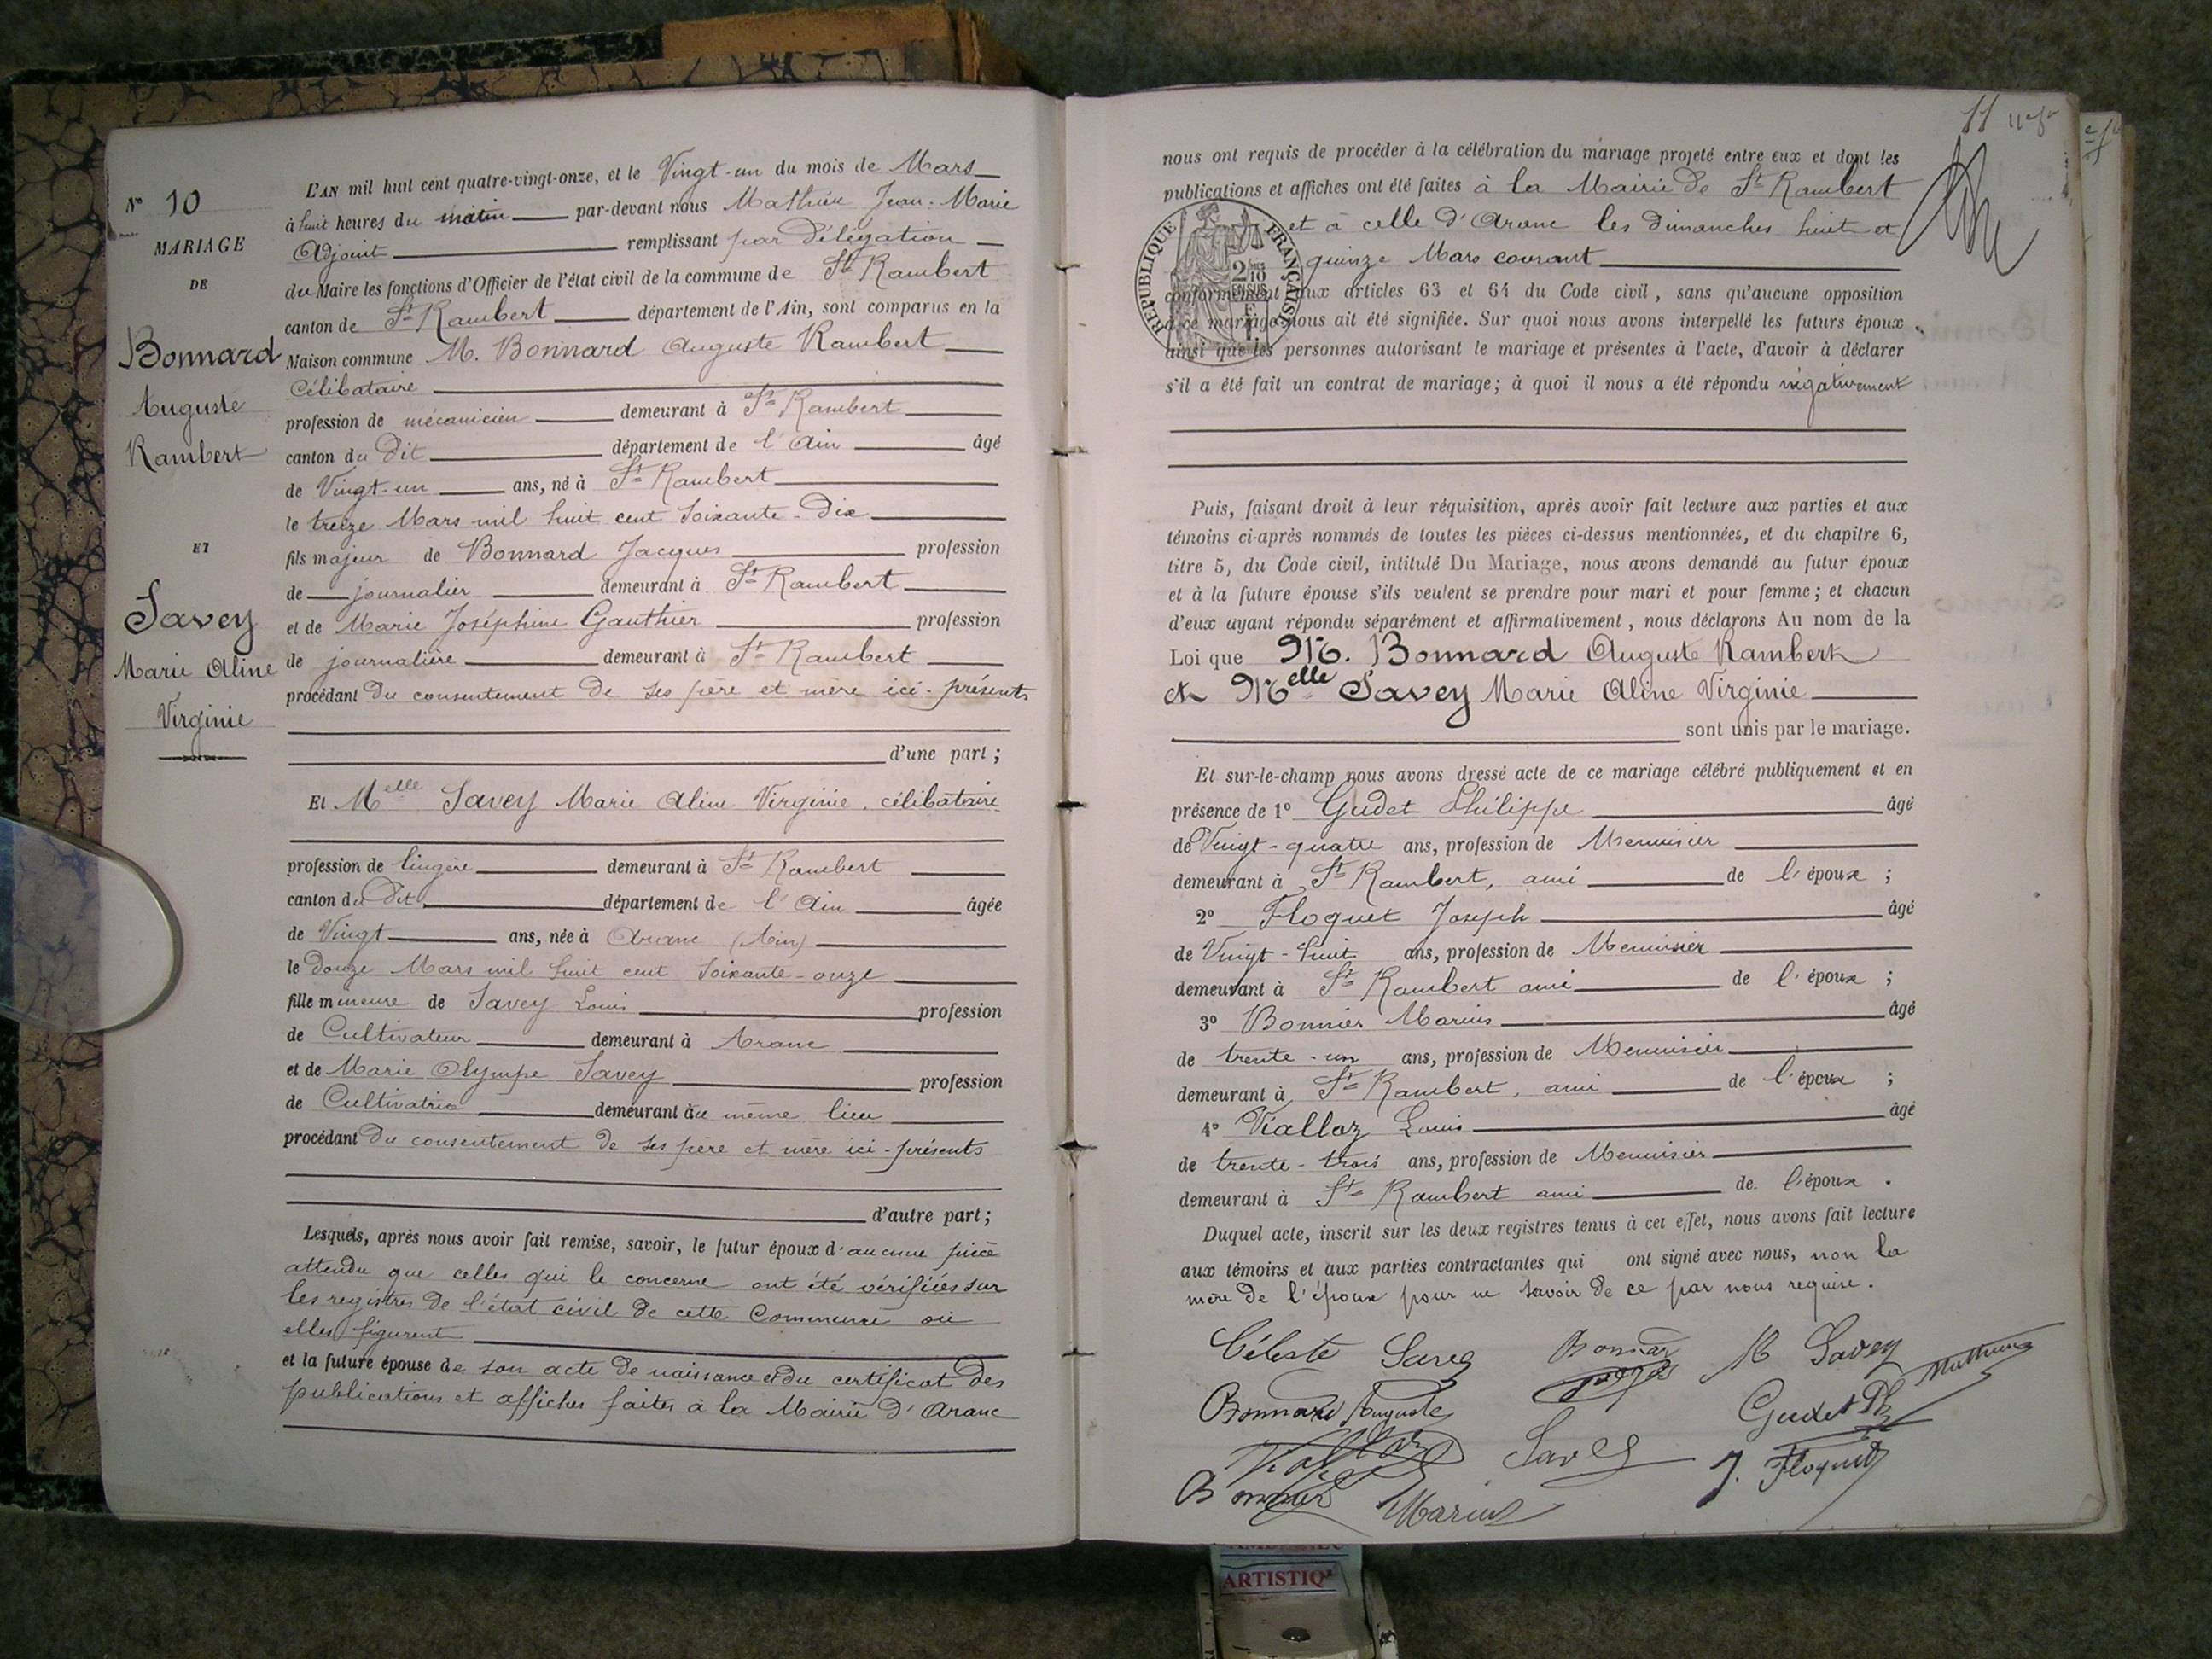 N° 10
MARIAGE
DE
Bonnard
Auguste
Rambert
ET
Savey
Marie Aline
Virginie
L'AN mil huit cent quatre-vingt-onze, et le Vingt-un du mois de Mars
à huit heures du matin par-devant nous Mathieu Jean-Marie
Adjoint remplissant par Délégation
du Maire les fonctions d'Officier de l'état civil de la commune de St Rambert
canton de St Rambert département de l'Ain, sont comparus en la
Maison commune M. Bonnard Auguste Rambert
Célibataire
profession de mécanicien demeurant à St Rambert
canton du Dit département de l'Ain âgé
de Vingt-un ans, né à St Rambert
le treize Mars mil huit cent soixante-Dix
fils majeur de Bonnard Jacques profession
de journalier demeurant à St Rambert
et de Marie Joséphine Gauthier profession
de journalière demeurant à St Rambert
procédant Du consentement de ses père et mère ici-présents
d'une part ;
Et Melle Savey Marie Aline Virginie, célibataire
profession de lingère demeurant à St Rambert
canton du Dit département de l'Ain âgée
de Vingt ans, née à Aranc (Ain)
le Douze Mars mil huit cent soixante-onze
fille mineure de Savey Louis profession
de Cultivateur demeurant à Aranc
et de Marie Olympe Savey profession
de Cultivatrice demeurant au même lieu
procédant Du consentement de ses père et mère ici-présents
d'autre part ;
Lesquels, après nous avoir fait remise, savoir, le futur époux d'aucune pièce
attendu que celles qui le concerne ont été vérifiées sur
les registres de l'état civil de cette Commune où
elles figurent
et la future épouse de son acte de naissance et du certificat des
publications et affiches faites à la Mairie d'Aranc
11
nous ont requis de procéder à la célébration du mariage projeté entre eux et dont les
publications et affiches ont été faites à la Mairie de St Rambert
et à celle d'Aranc les dimanches huit et
quinze Mars courant
RÉPUBLIQUE FRANÇAISE
2/10 EN SUS
conformément aux articles 63 et 64 du Code civil, sans qu'aucune opposition
à ce mariage nous ait été signifiée. Sur quoi nous avons interpellé les futurs époux
ainsi que les personnes autorisant le mariage et présentes à l'acte, d'avoir à déclarer
s'il a été fait un contrat de mariage ; à quoi il nous a été répondu négativement
Puis, faisant droit à leur réquisition, après avoir fait lecture aux parties et aux
témoins ci-après nommés de toutes les pièces ci-dessus mentionnées, et du chapitre 6,
titre 5, du Code civil, intitulé Du Mariage, nous avons demandé au futur époux
et à la future épouse s'ils veulent se prendre pour mari et pour femme ; et chacun
d'eux ayant répondu séparément et affirmativement, nous déclarons Au nom de la
Loi que M. Bonnard Auguste Rambert
et Melle Savey Marie Aline Virginie
sont unis par le mariage.
Et sur-le-champ nous avons dressé acte de ce mariage célébré publiquement et en
présence de 1° Gudet Philippe âgé
de Vingt-quatre ans, profession de Menuisier
demeurant à St Rambert, ami de l'époux ;
2° Floquet Joseph âgé
de Vingt-huit ans, profession de Menuisier
demeurant à St Rambert ami de l'époux ;
3° Bonnier Marius âgé
de trente-un ans, profession de Menuisier
demeurant à St Rambert, ami de l'époux ;
4° Viallaz Louis âgé
de trente-trois ans, profession de Menuisier
demeurant à St Rambert ami de l'époux.
Duquel acte, inscrit sur les deux registres tenus à cet effet, nous avons fait lecture
aux témoins et aux parties contractantes qui ont signé avec nous, non la
mère de l'époux pour ne savoir de ce par nous requise.
Céleste Savey Bonnard M Savey
Bonnard Auguste Gudet Ph
Viallaz Savey J. Floquet
Bonnier Marius
ARTISTIQ